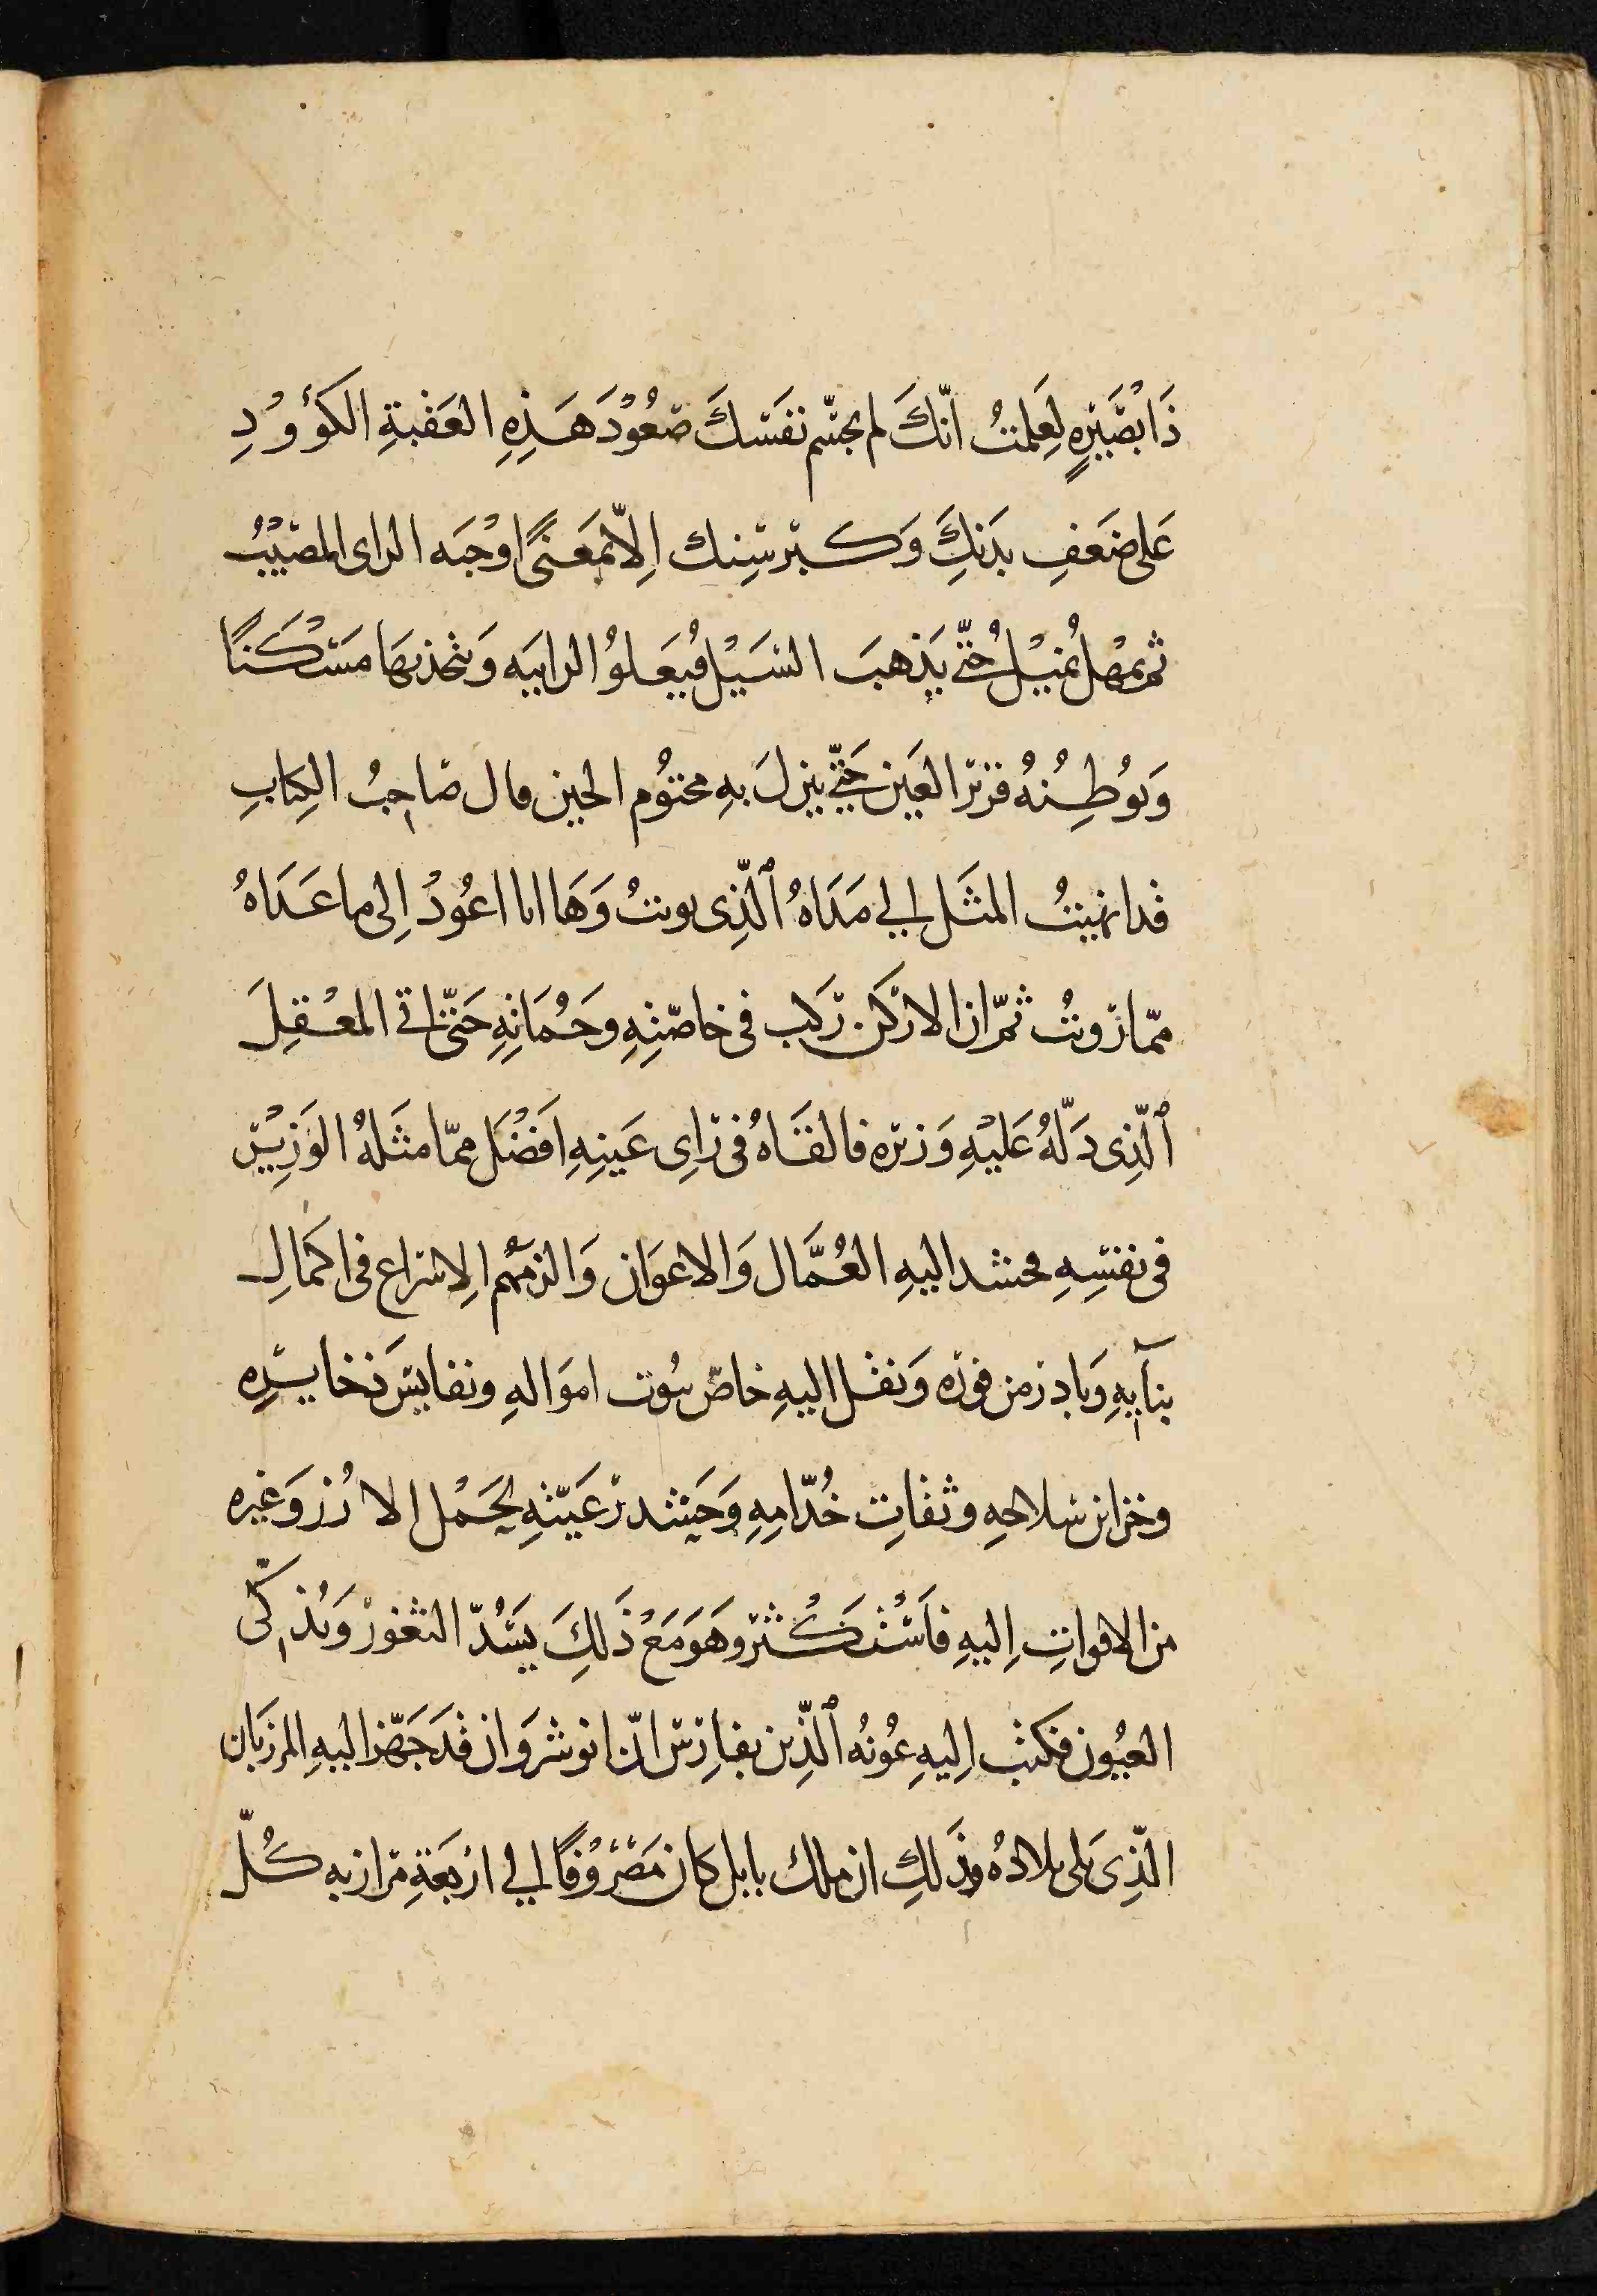 ذَا بْصَيْرَةٍ لَعَلمتُ انّكَ لم تجشّم نفسَكَ صُعُوْدَ هَذِهِ العَقْبَةِ الكَؤوْدِ
عَلى ضَعَفِ بَدَنِكَ وَكبر سِنك اِلّا لمَعَنىً اوْجبَه الراى المصَيْبُ
ثم تمهّل حَتّى يَذهبَ السَيْل فيَعَلوُ الرابيَه وَيتخذ بهَا مسْكَنًا
وَيوُطِنُهُ قرير العَين حَتّى ينزلَ بهِ محتوُم الحين قال صَاحبُ الكِتابِ
قد انهيتُ المثَل الي مَدَاهُ ٱلّذِى نويتُ وَهَا انا اعُودْ اِلى ما عَدَاهُ
ممّا رَويتُ ثمّ ان الاركن ركب فى خاصّتِهِ وحَمُاتِهِ حَتّى اتى المعْقِلَ
ٱلّذِى دَلّهُ عَليْهِ وَزيره فالفَاهُ فى رَاىِ عَينِهِ افَضْلَ ممّا مثَلهُ الوَزِيْر
فى نفسِهِ فحشد اليهِ العُمَّال وَالاعوَان وَالزمهُم الاِسراع فى اكمَالِ
بنآيهِ وَبادر من فورِه وَنقل اليهِ خاصّ بيُوت اموَالهِ ونفايسَ ذخايرِه
وخزاين سَلاحهِ وثقاتِ خُدّامِهِ وَحَشد رَعَيّتهِ لحَمْل الارُز وَغيره
من الاقواتِ اِليهِ فاَسْتكْثر وهَوَ مَعَ ذَلكِ يسَدّ الثغورْ وَيُذكّى
العيُون فكتب اِليهِ عيُونُه ٱلّذِين بفارِسَ انّ انوشروَان قدَ جَهّز اليهِ المرزبَان
الّذِى يَلى بلادهُ وذَلكِ ان ملك بابل كان مَصْرُوْفًا الي اربَعَةِ مرازبه كُلّ